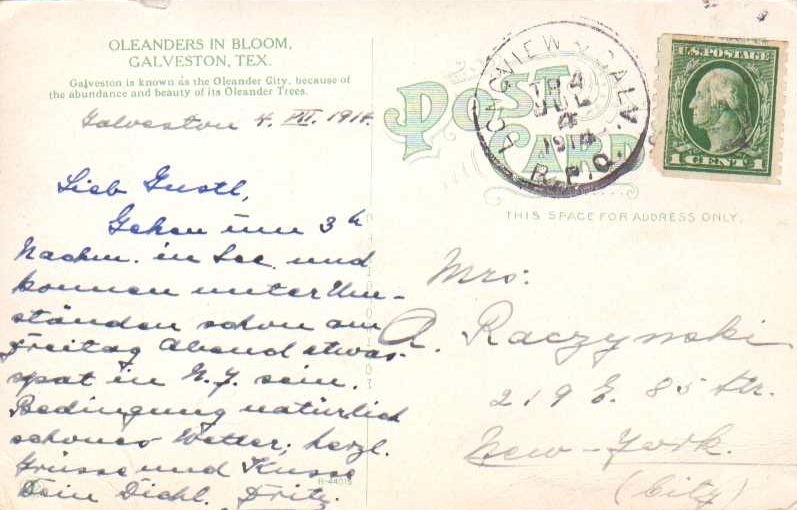 OLEANDERS IN BLOOM,
GALVESTON, TEX.
Galveston is known as the Oleander City, because of
the abundance and beauty of its Oleander Trees.
Galveston 4. VII. 1914.
Lieb Gustl,
Gehen um 3 h
Nachm. in See und
konnen unter Um-
ständen schon am
Freitag Abend etwas
spat in N. Y. sein.
Bedingung natürlich
schones Wetter; herzl.
Grüsse und Kusse
Dein Dichl. Fritz.
POST CARD
LONGVIEW & GALV.
TR 4
JUL
4
1914
R.P.O.
U.S. POSTAGE
1 CENT 1
THIS SPACE FOR ADDRESS ONLY.
Mrs:
A. Raczynski
219 E. 85 Str.
New-York.
(City)